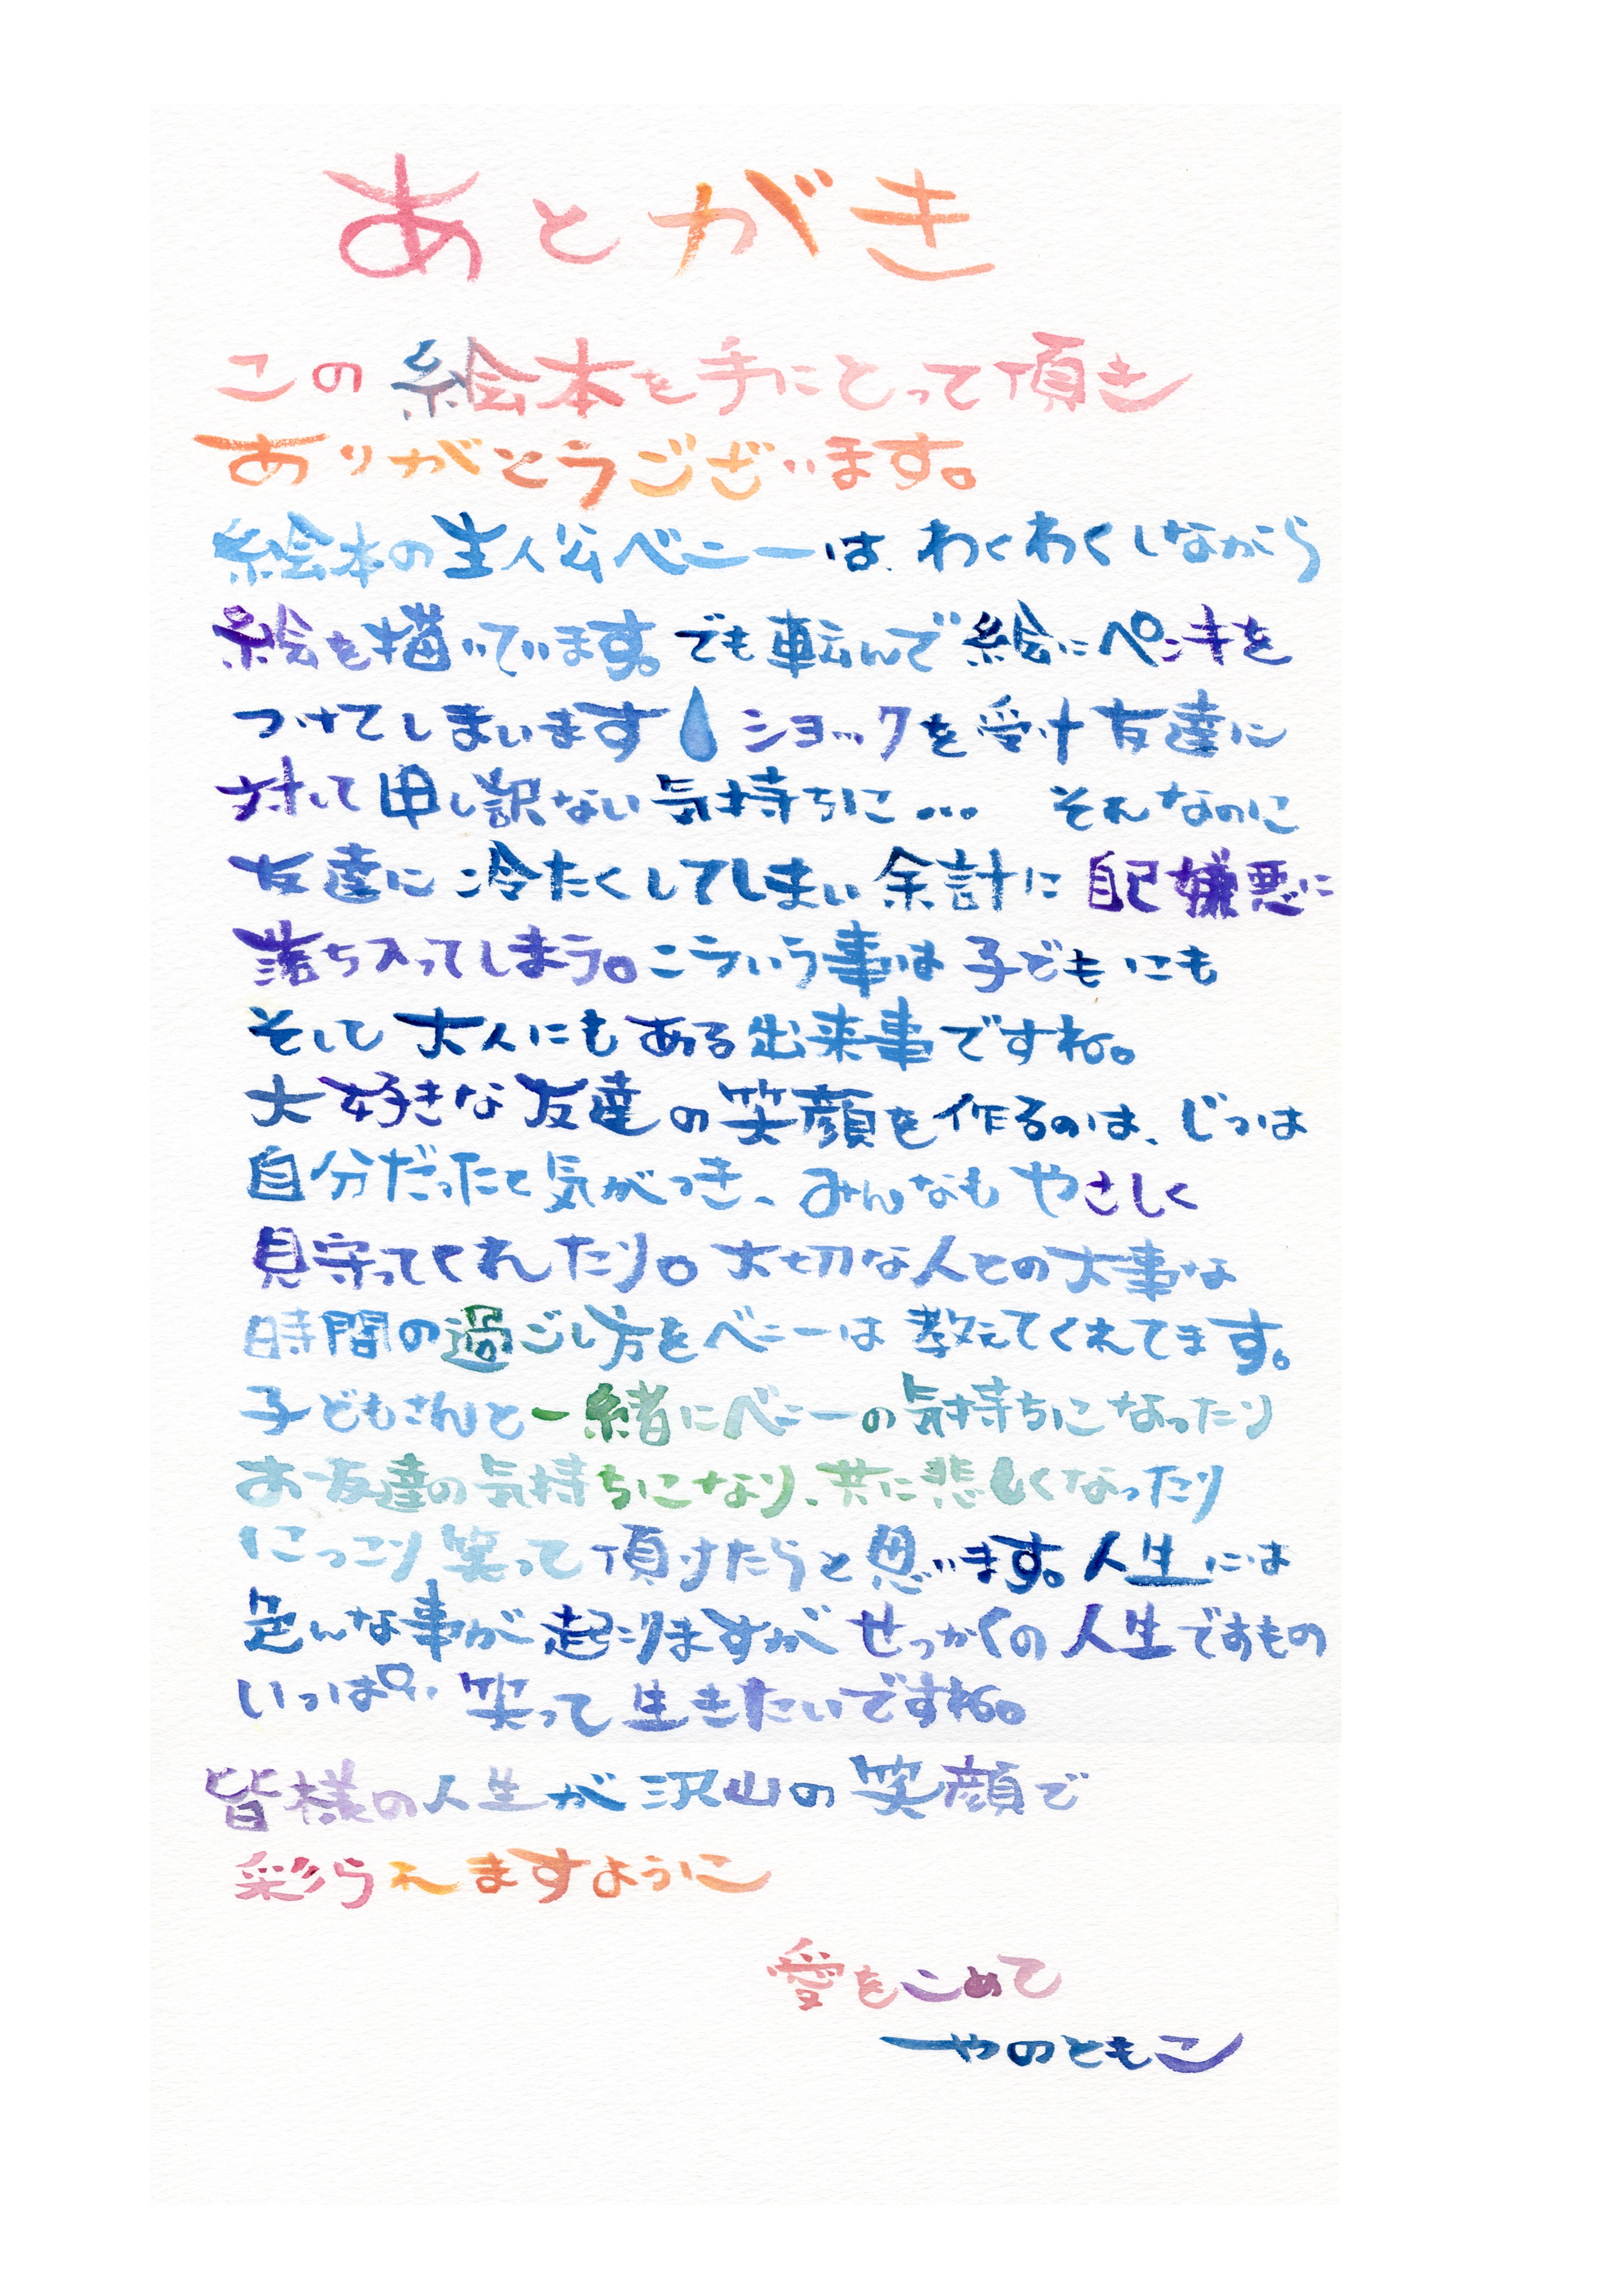 あとがき
この絵本を手にとって頂き
ありがとうございます。
絵本の主人公ベニーは、わくわくしながら
絵を描いています。でも転んで絵にペンキを
つけてしまいます ショックを受け友達に
対して申し訳ない気持ちに… それなのに
友達に冷たくしてしまい余計に自己嫌悪に
落ち入ってしまう。こういう事は子どもにも
そして大人にもある出来事ですね。
大好きな友達の笑顔を作るのは、じつは
自分だったと気がつき、みんなもやさしく
見守ってくれたり。大切な人との大事な
時間の過ごし方をベニーは教えてくれてます。
子どもさんと一緒にベニーの気持ちになったり
お友達の気持ちになり、共に悲しくなったり
にっこり笑って頂けたらと思います。人生には
色んな事が起こりますがせっかくの人生ですもの
いっぱい笑って生きたいですね。
皆様の人生が沢山の笑顔で
彩られますように
愛をこめて
やのともこ